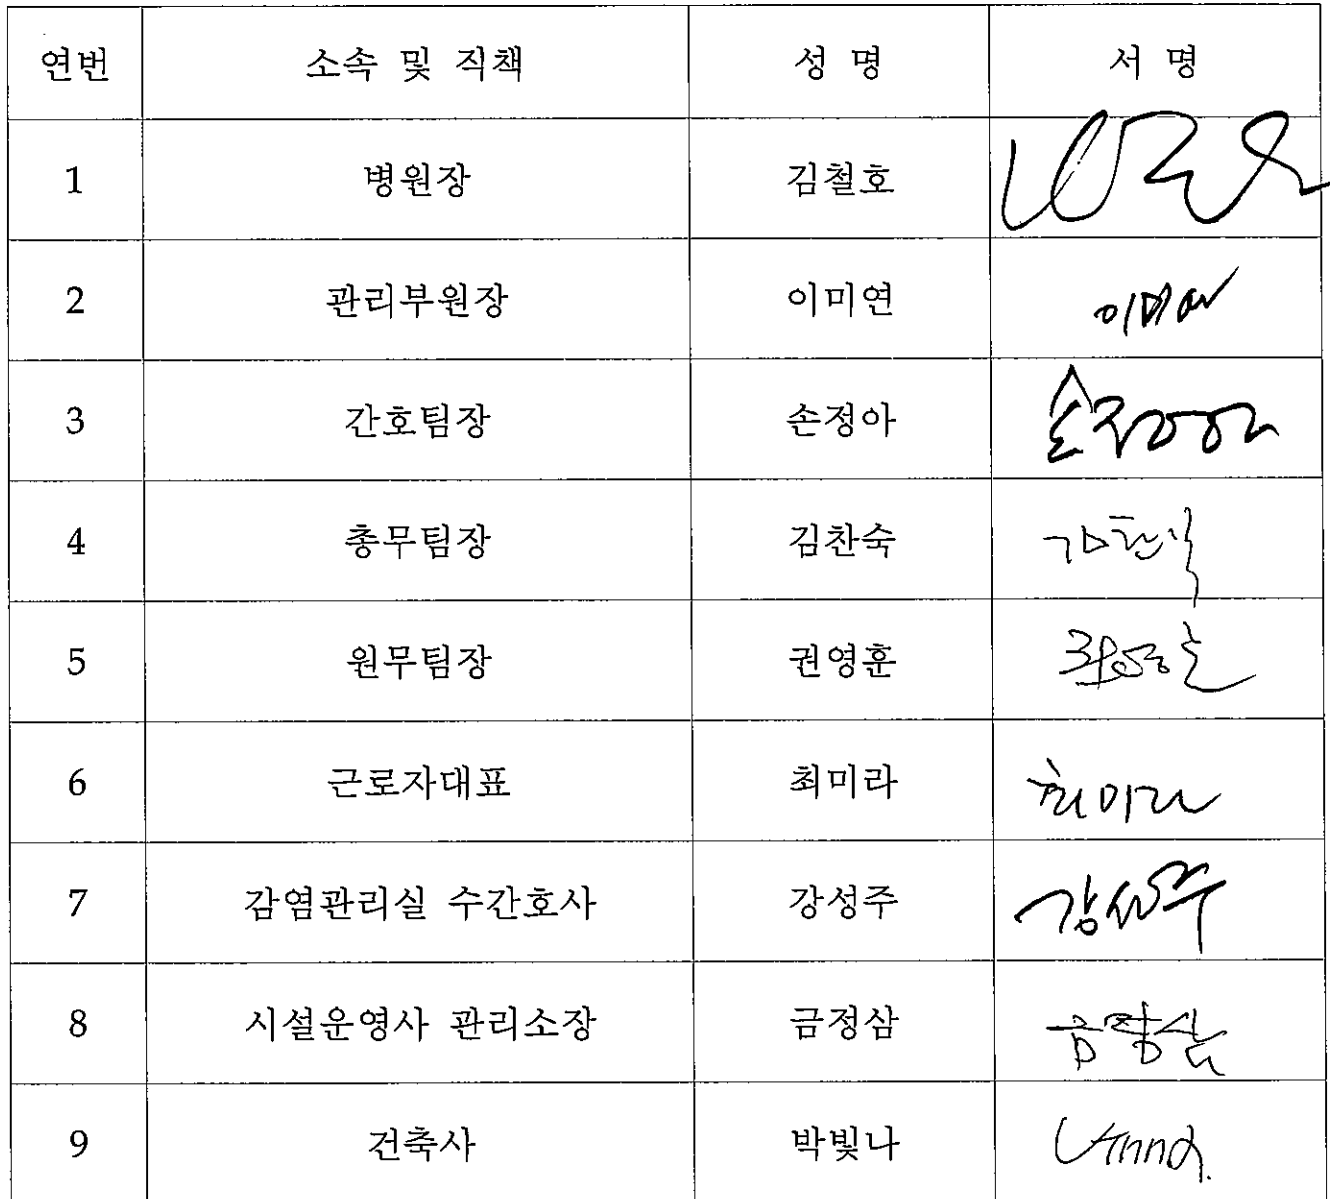 연번 소속 및 직책 성 명 서 명
1 병원장 김철호
2 관리부원장 이미연 이미연
3 간호팀장 손정아 손정아
4 총무팀장 김찬숙
5 원무팀장 권영훈
6 근로자대표 최미라 최미라
7 감염관리실 수간호사 강성주 강성주
8 시설운영사 관리소장 금정삼 금정삼
9 건축사 박빛나